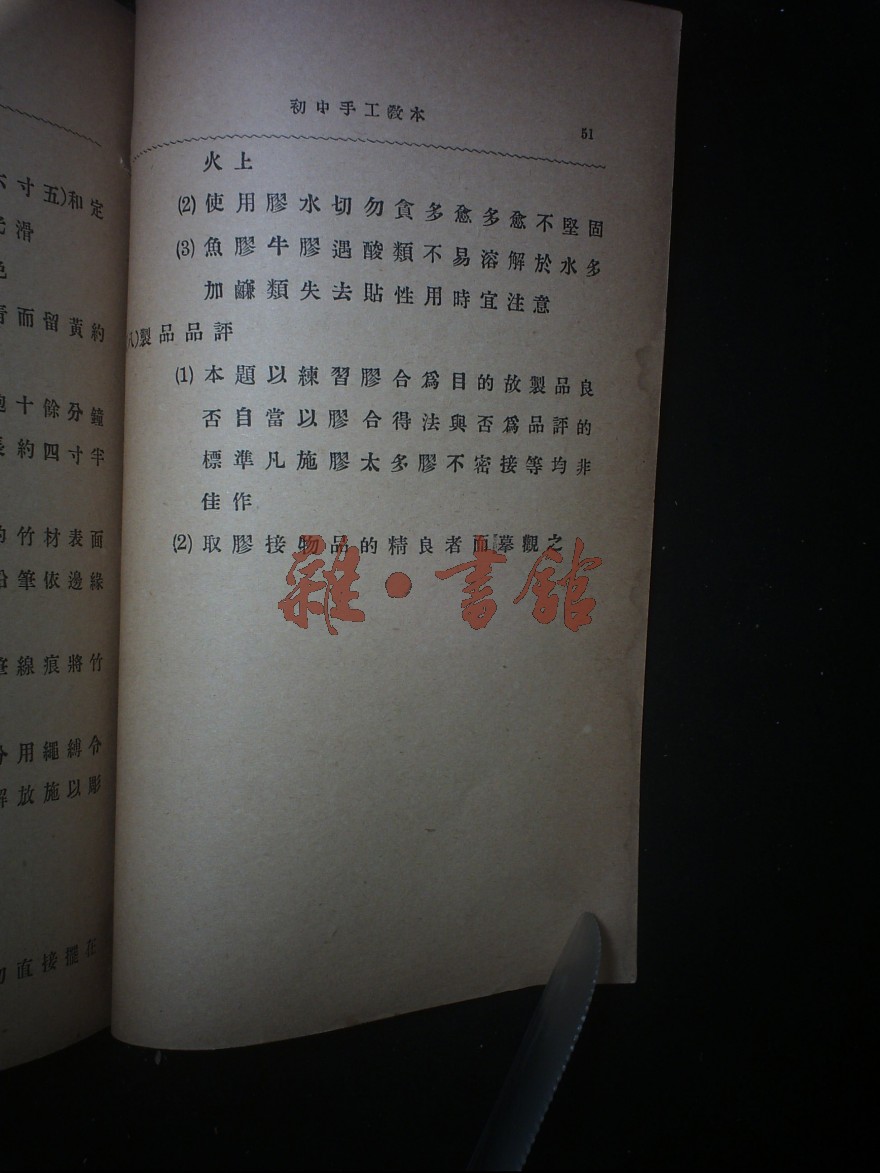 寸五)和定
滑
色
而留黃約
十餘分鐘
約四寸半
竹材表面
筆依邊緣
線痕將竹
用繩縛令
放施以彫
直接擺在
初中手工教本
51
火上
(2)使用膠水切勿貪多愈多愈不堅固
(3)魚膠牛膠遇酸類不易溶解於水多
加鹻類失去貼性用時宜注意
八)製品品評
(1)本題以練習膠合爲目的故製品良
否自當以膠合得法與否爲品評的
標準凡施膠太多膠不密接等均非
佳作
(2)取膠接物品的精良者而摹觀之
雜·書館